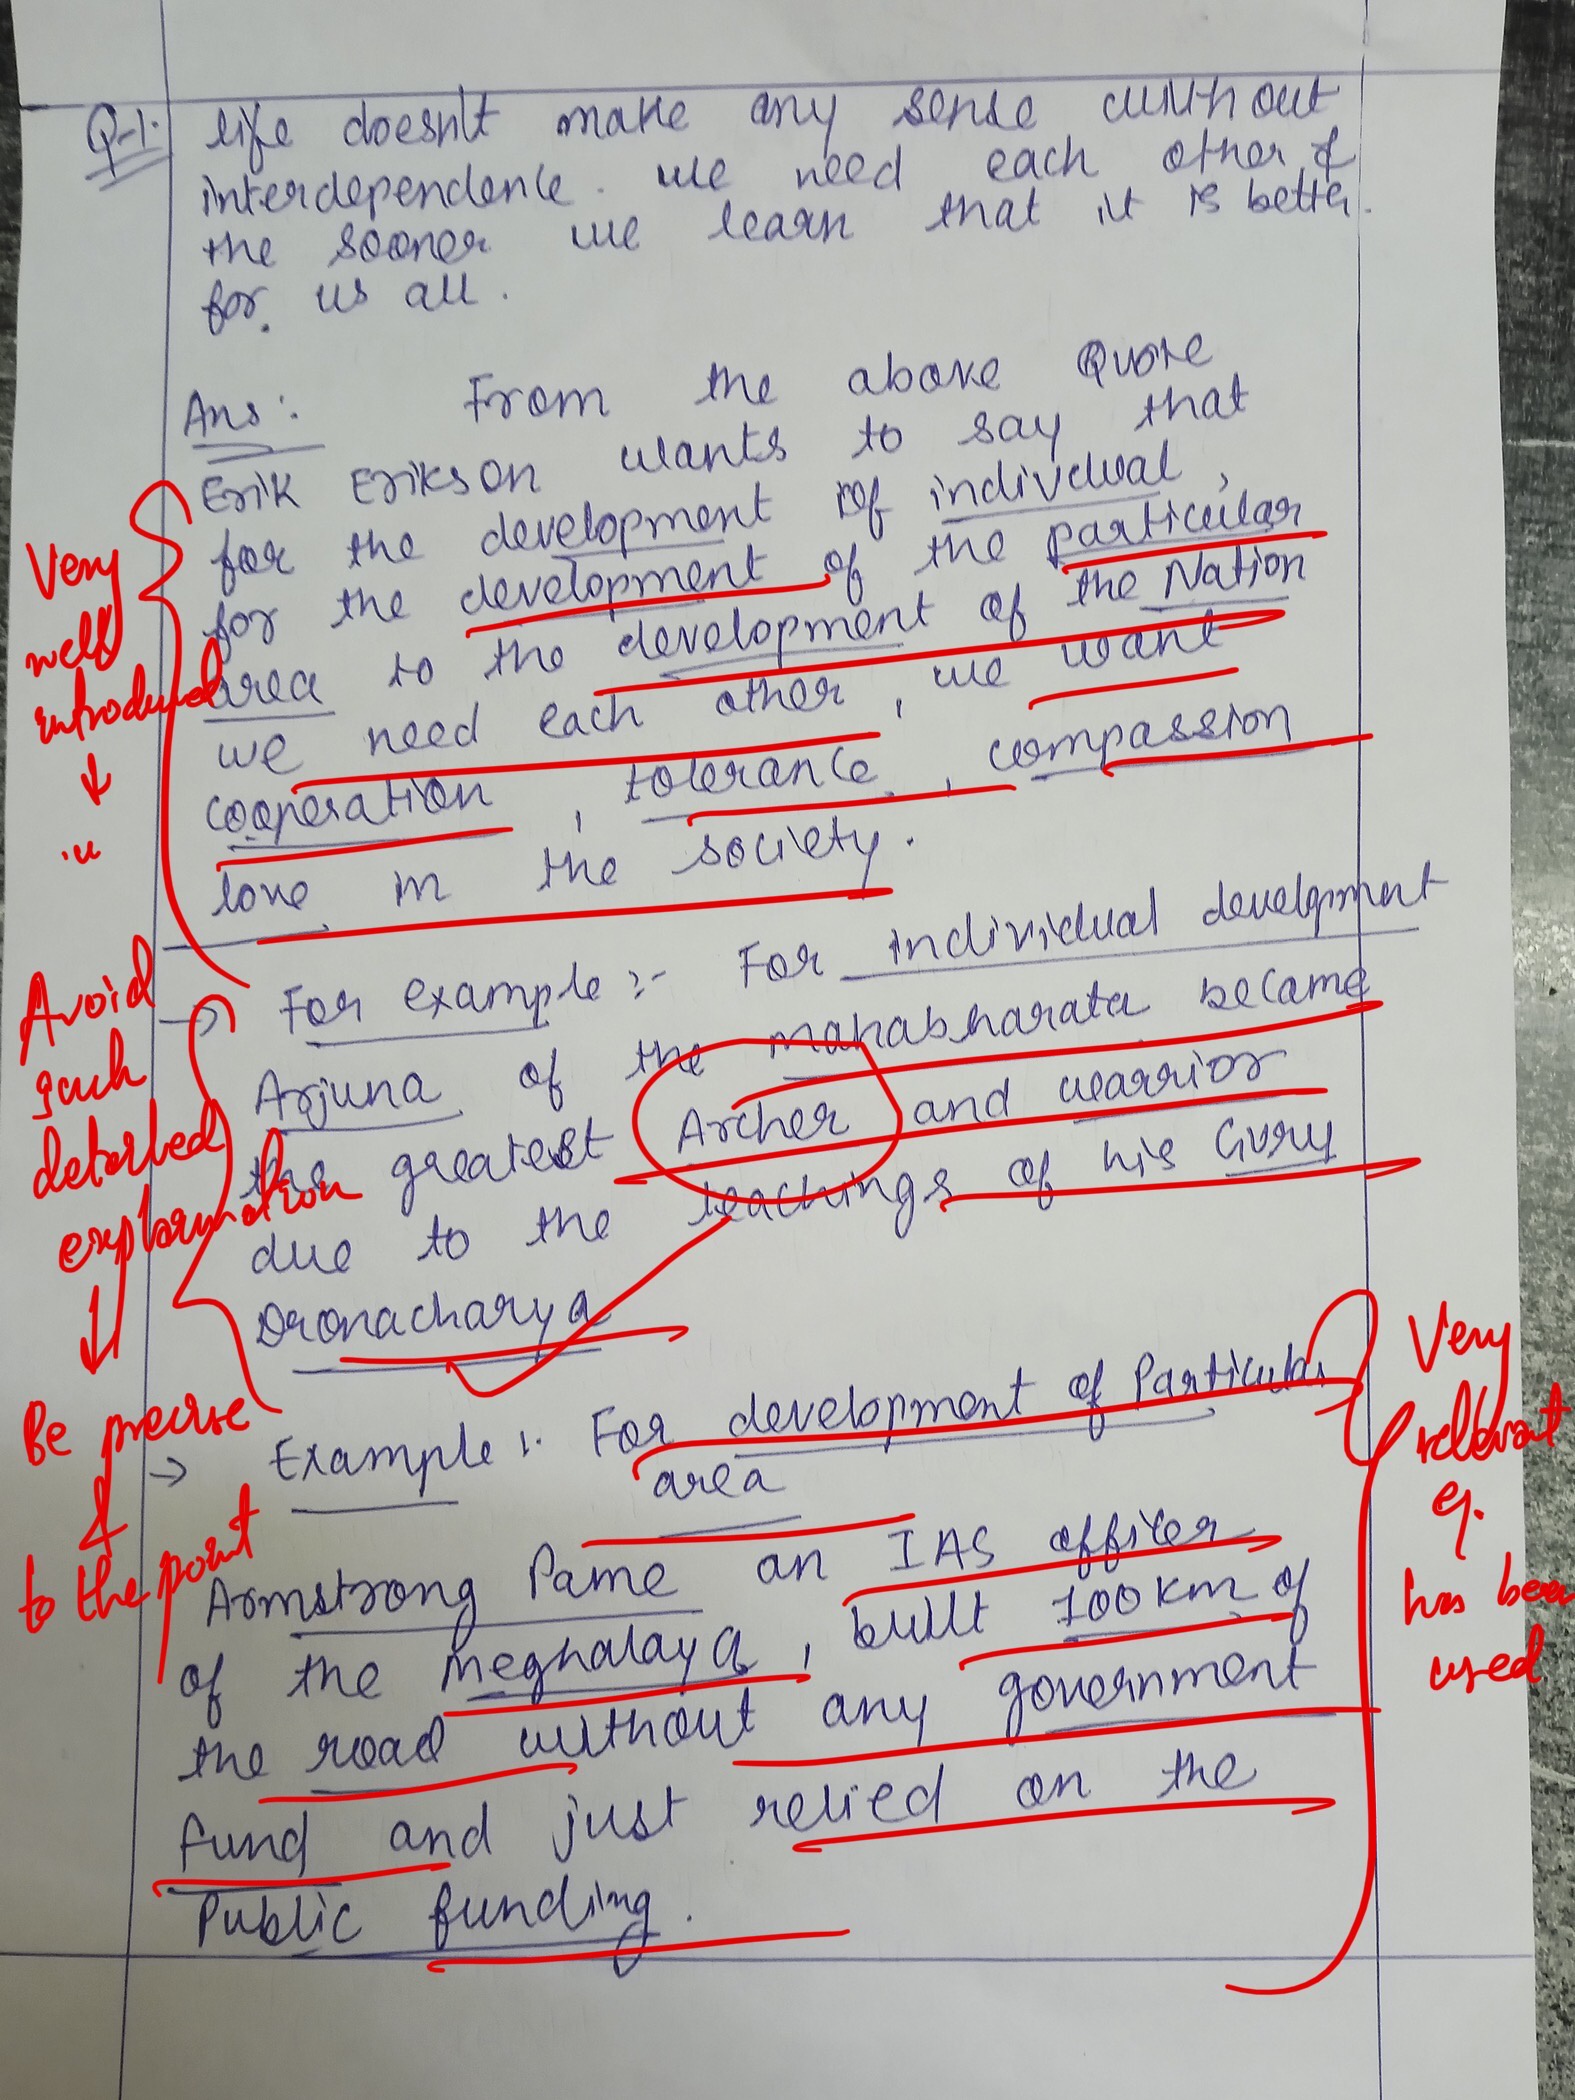 Q-1. life doesn't make any sense without
interdependence. we need each other &
the sooner we learn that it is better
for us all.
Ans: From the above Quote
Erik Erikson wants to say that
for the development of indivdual,
for the development of the particular
area to the development of the Nation
we need each other, we want
cooperation, tolerance, compassion
love in the society.
Very
well
introduced
→ For example :- For individual development
Arjuna of the mahabharata became
the greatest Archer and warrior
due to the teachings of his Guru
Dronacharya
Avoid
such
detailed
explanation
Be precise
&
to the point
→ Example :- For development of Particular
area
Armstrong Pame an IAS officer
of the meghalaya, built 100 km of
the road without any government
fund and just relied on the
Public funding.
Very
relevant
eg.
has been
used